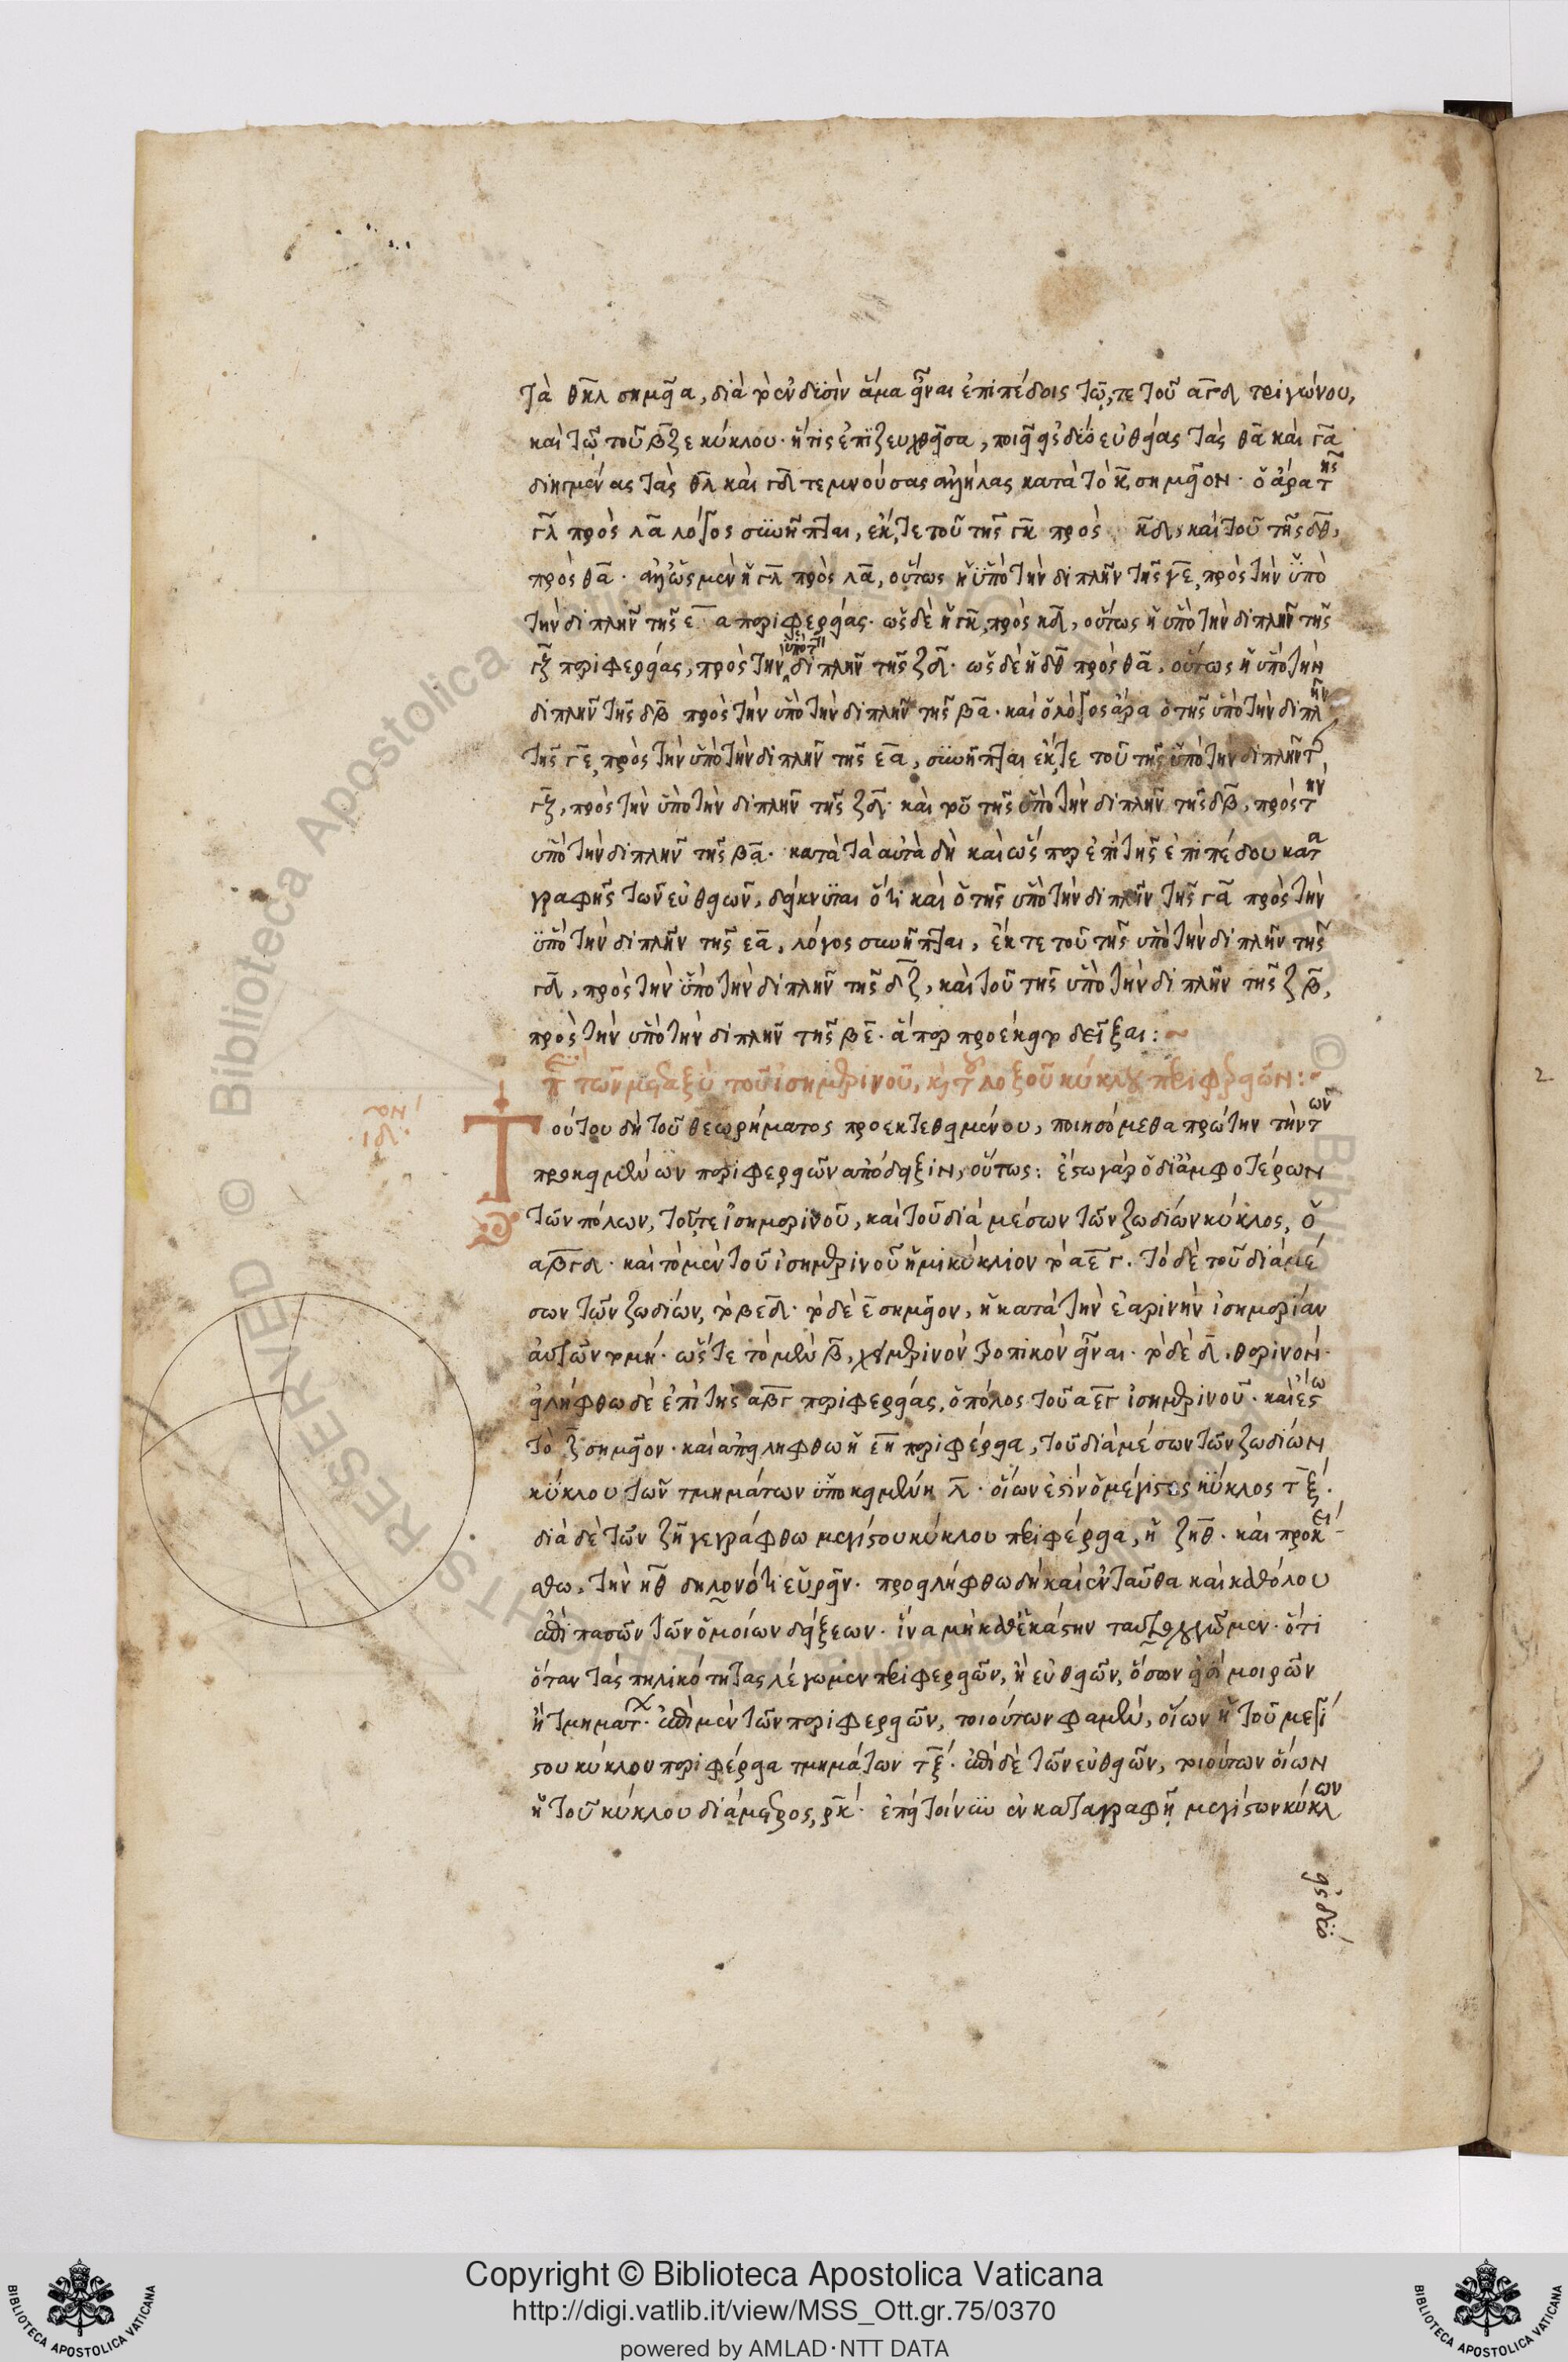 τὰ θκλ σημεῖα, διὰ τὸ ἐν δυσὶν ἅμα εἶναι ἐπιπέδοις τῷ, τε τοῦ αγδ τριγώνου,
καὶ τῷ τοῦ βζε κύκλου· ἥτις ἐπιζευχθεῖσα, ποιεῖ εἰς δύο εὐθείας τὰς θα καὶ γα
διηγμένας τὰς θλ καὶ γδ τεμνούσας ἀλλήλας κατὰ τὸ κ σημεῖον· ὁ ἄρα τῆς
γλ πρὸς λα λόγος συνῆπται, ἔκ, τε τοῦ τῆς γκ πρὸς κδ, καὶ τοῦ τῆς δθ,
πρὸς θα· ἀλλ' ὡς μὲν ἡ γλ πρὸς λα, οὕτως ἡ ὑπὸ τὴν διπλῆν τῆς γε, πρὸς τὴν ὑπὸ
τὴν διπλῆν τῆς εα περιφερείας· ὡς δὲ ἡ γκ, πρὸς κδ, οὕτως ἡ ὑπὸ τὴν διπλῆν τῆς
γζ περιφερείας, πρὸς τὴν ὑπὸ τὴν διπλῆν τῆς ζδ· ὡς δὲ ἡ δθ πρὸς θα, οὕτως ἡ ὑπὸ τὴν
διπλῆν τῆς δβ πρὸς τὴν ὑπὸ τὴν διπλῆν τῆς βα· καὶ ὁ λόγος ἄρα ὁ τῆς ὑπὸ τὴν διπλῆν
τῆς γε, πρὸς τὴν ὑπὸ τὴν διπλῆν τῆς εα, συνῆπται ἔκ, τε τοῦ τῆς ὑπὸ τὴν διπλῆν τῆς
γζ, πρὸς τὴν ὑπὸ τὴν διπλῆν τῆς ζδ· καὶ τοῦ τῆς ὑπὸ τὴν διπλῆν τῆς δβ, πρὸς τὴν
ὑπὸ τὴν διπλῆν τῆς βα· κατὰ τὰ αὐτὰ δὴ καὶ ὥσπερ ἐπὶ τῆς ἐπιπέδου κατα
γραφῆς τῶν εὐθειῶν, δείκνυται ὅτι καὶ ὁ τῆς ὑπὸ τὴν διπλῆν τῆς γα πρὸς τὴν
ὑπὸ τὴν διπλῆν τῆς εα, λόγος συνῆπται, ἔκ τε τοῦ τῆς ὑπὸ τὴν διπλῆν τῆς
γδ, πρὸς τὴν ὑπὸ τὴν διπλῆν τῆς δζ, καὶ τοῦ τῆς ὑπὸ τὴν διπλῆν τῆς ζβ,
πρὸς τὴν ὑπὸ τὴν διπλῆν τῆς βε· ἅπερ προέκειτο δεῖξαι:~
Περὶ τῶν μεταξὺ τοῦ ἰσημερινοῦ, καὶ τοῦ λοξοῦ κύκλου περιφερειῶν:~
Τούτου δὴ τοῦ θεωρήματος προεκτεθειμένου, ποιησόμεθα πρώτην τὴν τῶν
προκειμένων περιφερειῶν ἀπόδειξιν, οὕτως: ἔστω γὰρ ὁ δι' ἀμφοτέρων
τῶν πόλων, τοῦ, τε ἰσημερινοῦ, καὶ τοῦ διὰ μέσων τῶν ζωδίων κύκλος, ὁ
αβγδ· καὶ τὸ μὲν τοῦ ἰσημερινοῦ ἡμικύκλιον τὸ αεγ. τὸ δὲ τοῦ διὰ μέ
σων τῶν ζωδίων, τὸ βεδ· τὸ δὲ ε σημεῖον, ἡ κατὰ τὴν ἐαρινὴν ἰσημερίαν
αὐτῶν τομή· ὥστε τὸ μὲν β, χειμερινὸν τροπικὸν εἶναι· τὸ δὲ δ, θερινόν·
εἰλήφθω δὲ ἐπὶ τῆς αβγ περιφερείας, ὁ πόλος τοῦ αεγ ἰσημερινοῦ· καὶ ἔστω
τὸ ζ σημεῖον· καὶ ἀπειλήφθω ἡ εη περιφέρεια, τοῦ διὰ μέσων τῶν ζωδίων
κύκλου τῶν τμημάτων ὑποκειμένη λ· οἵων ἐστὶν ὁ μέγιστος κύκλος τξ·
διὰ δὲ τῶν ζη γεγράφθω μεγίστου κύκλου περιφέρεια, ἡ ζηθ· καὶ προκεί
σθω, τὴν ηθ δηλονότι εὑρεῖν· προειλήφθω δὴ καὶ ἐνταῦθα καὶ καθόλου
ἐπὶ πασῶν τῶν ὁμοίων δείξεων· ἵνα μὴ καθ' ἑκάστην ταυτολογῶμεν· ὅτι
ὅταν τὰς πηλικότητας λέγωμεν περιφερειῶν, ἢ εὐθειῶν, ὅσων εἰσὶ μοιρῶν
ἢ τμημάτων· ἐπὶ μὲν τῶν περιφερειῶν, τοιούτων φαμὲν, οἵων ἡ τοῦ μεγί
στου κύκλου περιφέρεια τμημάτων τξ· ἐπὶ δὲ τῶν εὐθειῶν, τοιούτων οἵων
ἡ τοῦ κύκλου διάμετρος, ρκ· ἐπεὶ τοίνυν ἐν καταγραφῇ μεγίστων κύκλων
εἰς δύο
2
Copyright © Biblioteca Apostolica Vaticana
http://digi.vatlib.it/view/MSS_Ott.gr.75/0370
powered by AMLAD·NTT DATA
BIBLIOTECA APOSTOLICA VATICANA
BIBLIOTECA APOSTOLICA VATICANA